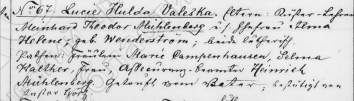 No 67. Lucie Hulda Valeska. Eltern: Küster-Lehrer
Meinhard Theodor Mühlenberg u. Ehefrau Alma
Helene, geb. Wenderstrom, beide lutherisch
Pathen: Fräulein Marie Campenhausen, Selma
Walther, Frau, Assecuranz-Beamter Heinrich
Mühlenberg. Getauft vom Vater, bestätigt von
Pastor